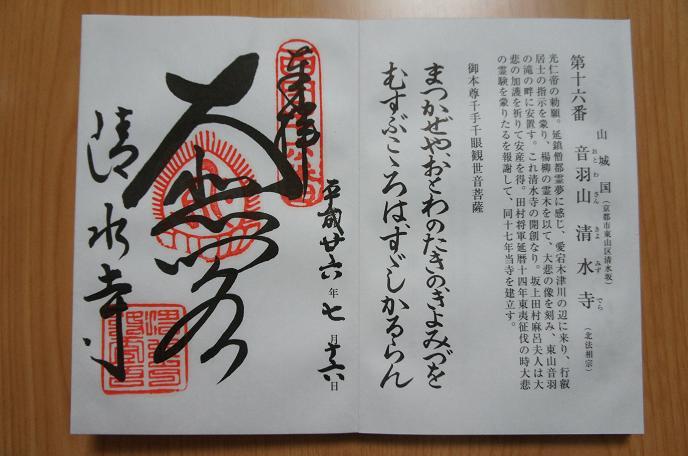 第十六番
山城国(京都市東山区清水坂)
音羽山 清水寺 (北法相宗)
おとわさん きよみずでら
光仁帝の勅願。延鎮僧都霊夢に感じ、愛宕木津川の辺に来り、行叡
居士の指示を蒙り、楊柳の霊木を以て、大悲の像を刻み、東山音羽
の滝の畔に安置す。これ清水寺の開創なり。坂上田村麻呂夫人は大
悲の加護を祈りて安産を得。田村将軍延暦十四年東夷征伐の時大悲
の霊験を蒙りたるを報謝して、同十七年当寺を建立す。
御本尊千手千眼観世音菩薩
まつかぜや、おとわのたきのきよみづを
むすぶこゝろは、すゞしかるらん
奉拝
平成廿六年七月廿六日
大悲閣
清水寺